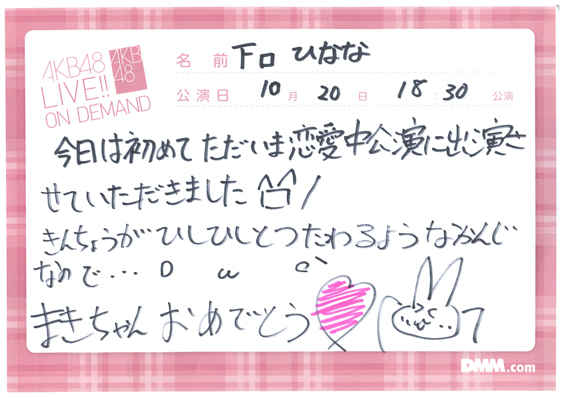 AKB48
LIVE!!
ON DEMAND
AKB
48
名前 下口 ひなな
公演日 10月 20日 18:30 公演
今日は初めてただいま恋愛中公演に出演さ
せていただきました
きんちょうがひしひしとつたわるようなかんじ
なので…
まきちゃん おめでとう
DMM.com